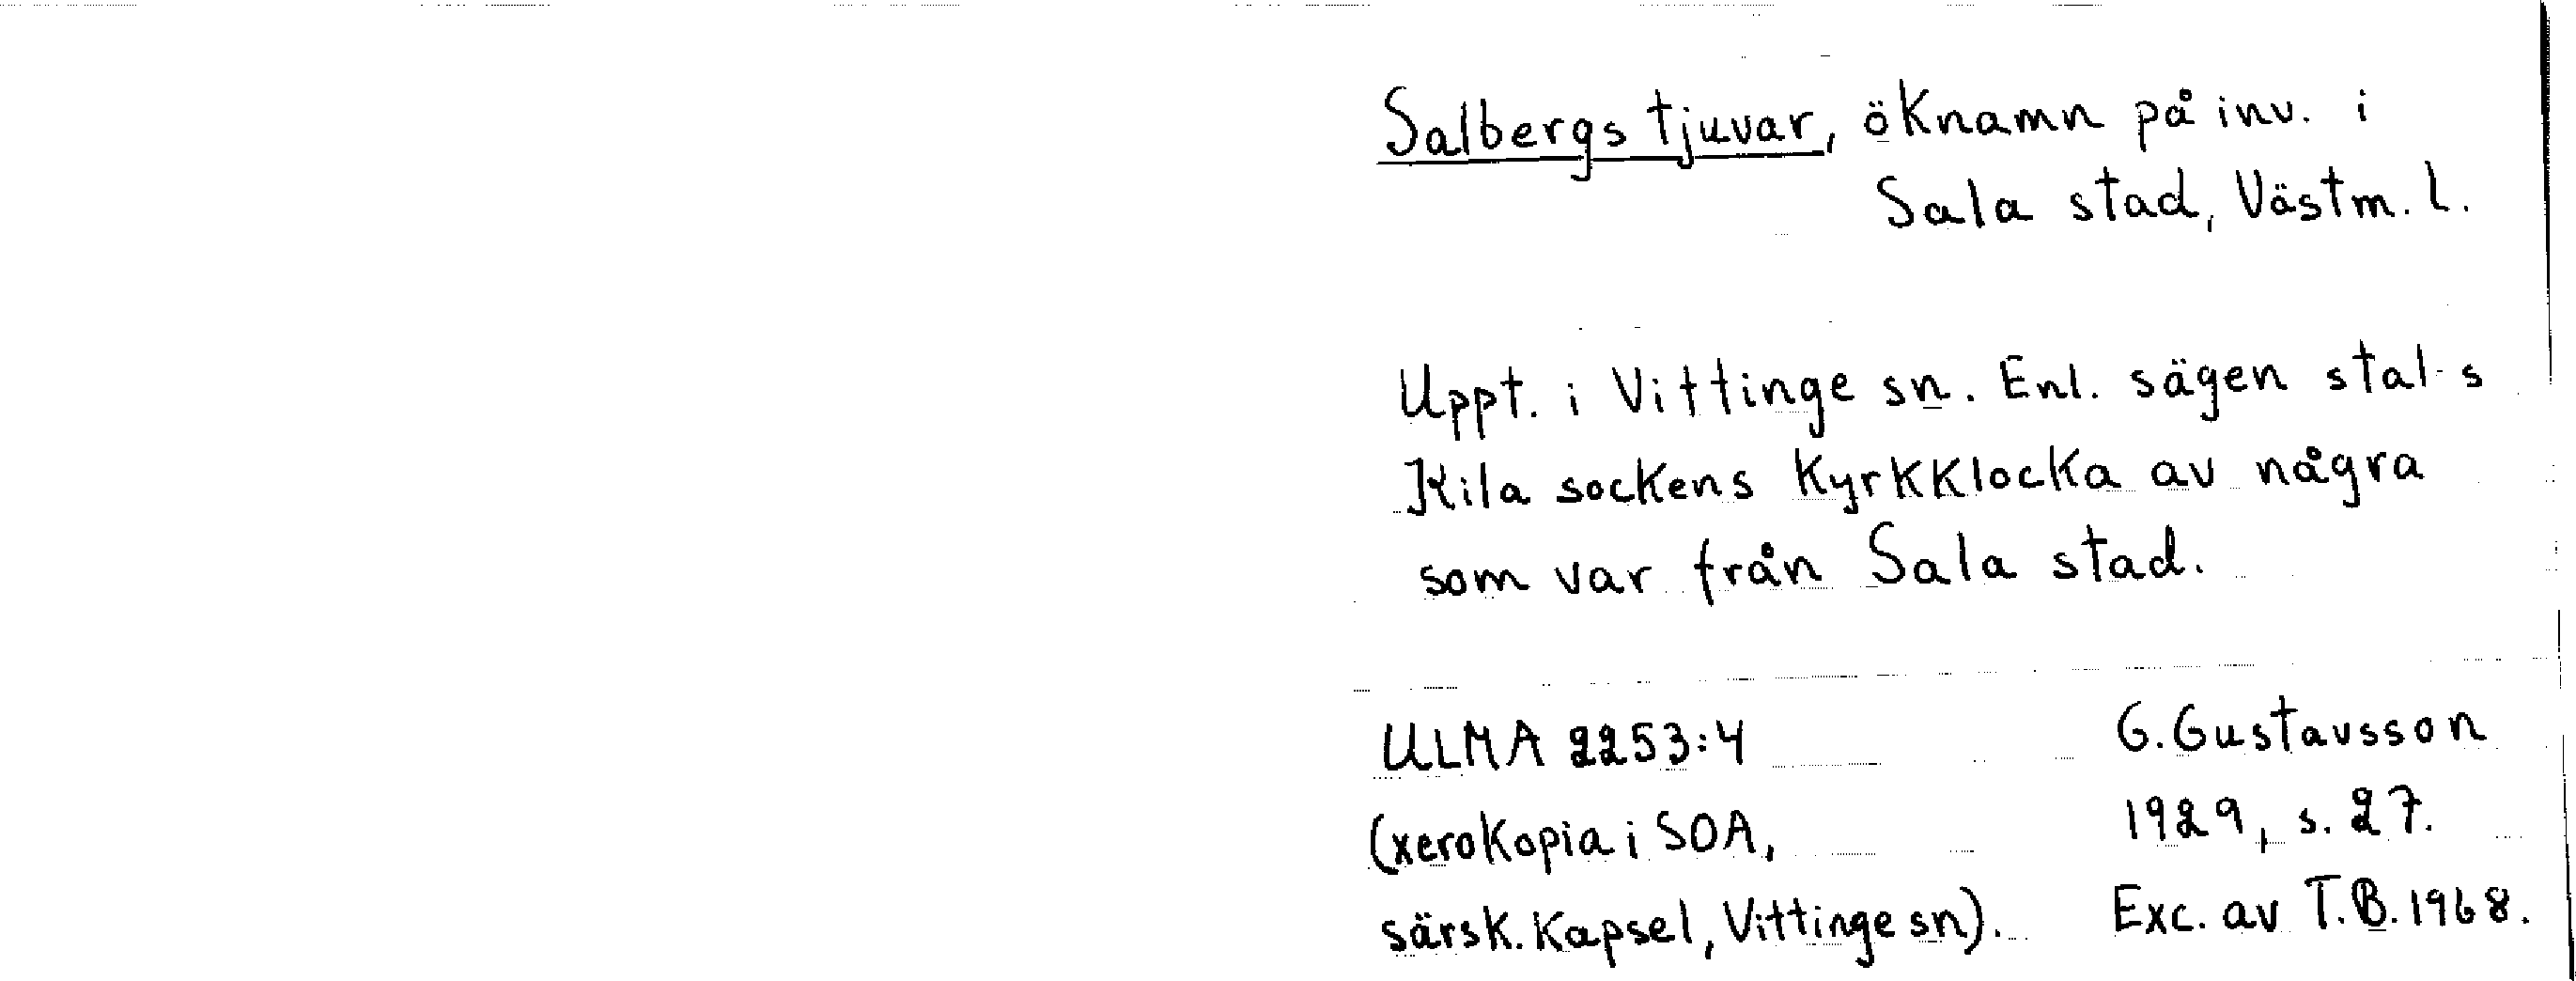 Salbergs tjuvar, öknamn på inv. i
Sala stad, Västm. l.
Uppt. i Vittinge sn. Enl. sägen stals
Kila sockens kyrkklocka av några
som var från Sala stad.
ULMA 2253:4
(xerokopia i SOA,
särsk. kapsel, Vittinge sn).
G. Gustavsson
1929, s. 27.
Exc. av T.B. 1968.